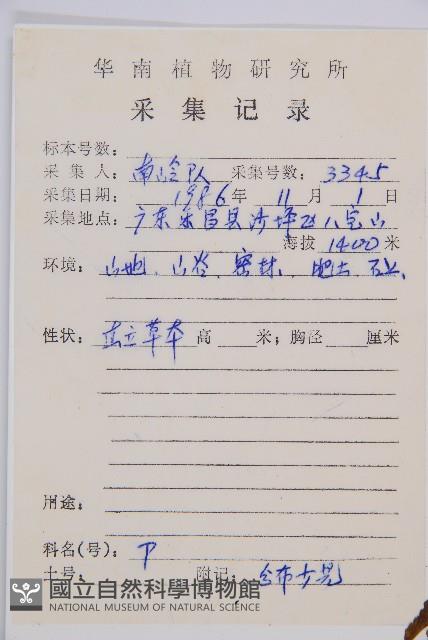 华南植物研究所
采集记录
标本号数：
采集人：南岭队 采集号数：3345
采集日期：1986年11月1日
采集地点：广东乐昌县沙坪区八宝山
海拔1400米
环境：山地、山谷、密林、肥土、石上、
性状：直立草本 高 米；胸径 厘米
用途：
科名(号)：P
土号： 附记：分布
國立自然科學博物館
NATIONAL MUSEUM OF NATURAL SCIENCE